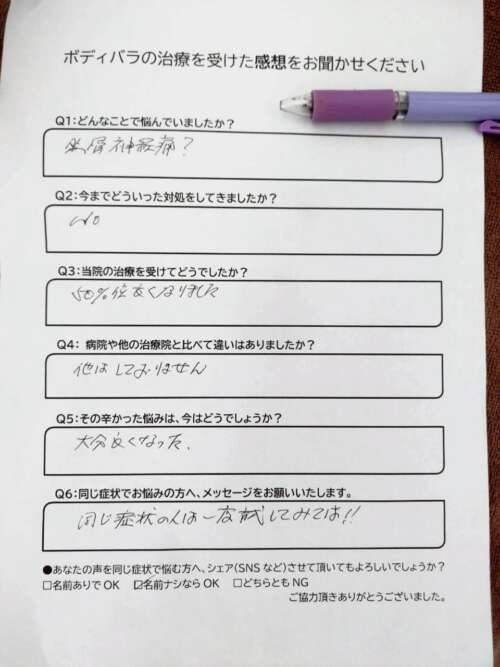 ボディバラの治療を受けた感想をお聞かせください
Q1:どんなことで悩んでいましたか？
坐骨神経痛?
Q2:今までどういった対処をしてきましたか？
NO
Q3:当院の治療を受けてどうでしたか？
50%位良くなりました
Q4: 病院や他の治療院と比べて違いはありましたか？
他はしておりません
Q5:その辛かった悩みは、今はどうでしょうか？
大分良くなった.
Q6:同じ症状でお悩みの方へ、メッセージをお願いいたします。
同じ症状の人は一度試してみては!!
●あなたの声を同じ症状で悩む方へ、シェア(SNS など)させて頂いてもよろしいでしょうか？
☐名前ありで OK ☑名前ナシなら OK ☐どちらとも NG
ご協力頂きありがとうございました。